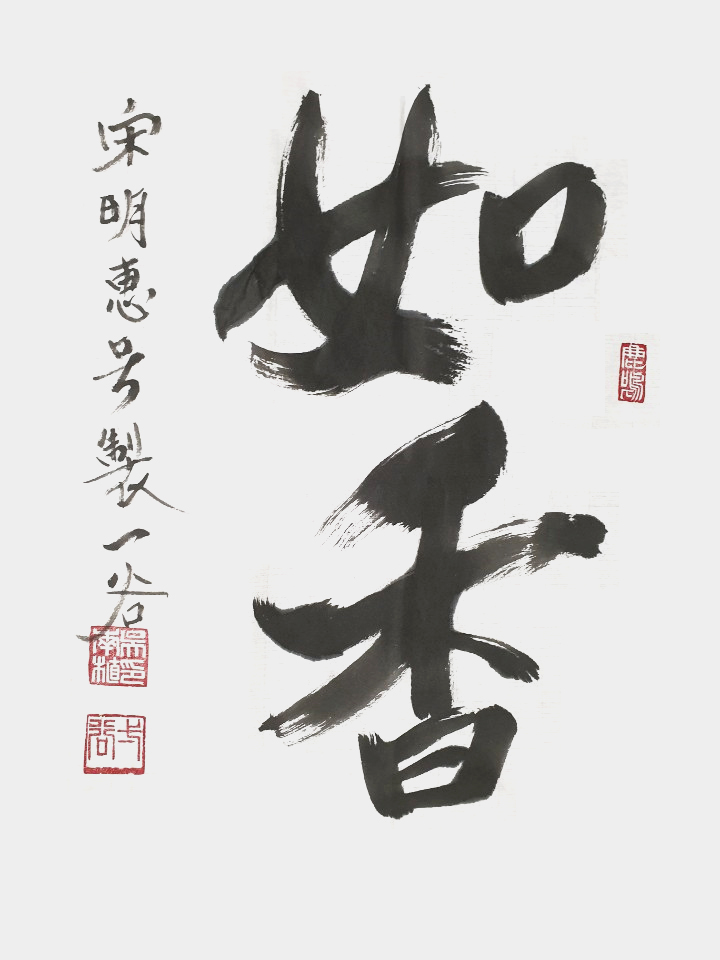 如香
鹿鳴
宋明惠号製一谷